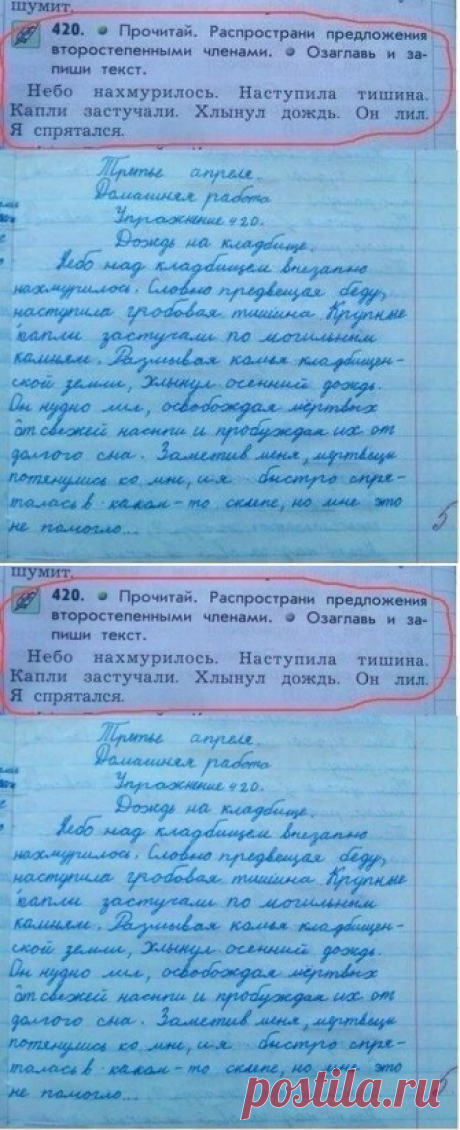 шумит.
420. Прочитай. Распространи предложения
второстепенными членами. Озаглавь и за-
пиши текст.
Небо нахмурилось. Наступила тишина.
Капли застучали. Хлынул дождь. Он лил.
Я спрятался.
Третье апреля.
Домашняя работа
Упражнение 420.
Дождь на кладбище.
Небо над кладбищем внезапно
нахмурилось. Словно предвещая беду,
наступила гробовая тишина. Крупные
капли застучали по могильным
камням. Размывая комья кладбищен-
ской земли, хлынул осенний дождь.
Он нудно лил, освобождая мёртвых
от свежей насыпи и пробуждая их от
долгого сна. Заметив меня, мертвецы
потянулись ко мне, и я быстро спря-
талась в каком-то склепе, но мне это
не помогло...
5
шумит.
420. Прочитай. Распространи предложения
второстепенными членами. Озаглавь и за-
пиши текст.
Небо нахмурилось. Наступила тишина.
Капли застучали. Хлынул дождь. Он лил.
Я спрятался.
Третье апреля.
Домашняя работа
Упражнение 420.
Дождь на кладбище.
Небо над кладбищем внезапно
нахмурилось. Словно предвещая беду,
наступила гробовая тишина. Крупные
капли застучали по могильным
камням. Размывая комья кладбищен-
ской земли, хлынул осенний дождь.
Он нудно лил, освобождая мёртвых
от свежей насыпи и пробуждая их от
долгого сна. Заметив меня, мертвецы
потянулись ко мне, и я быстро спря-
талась в каком-то склепе, но мне это
не помогло...
postila.ru